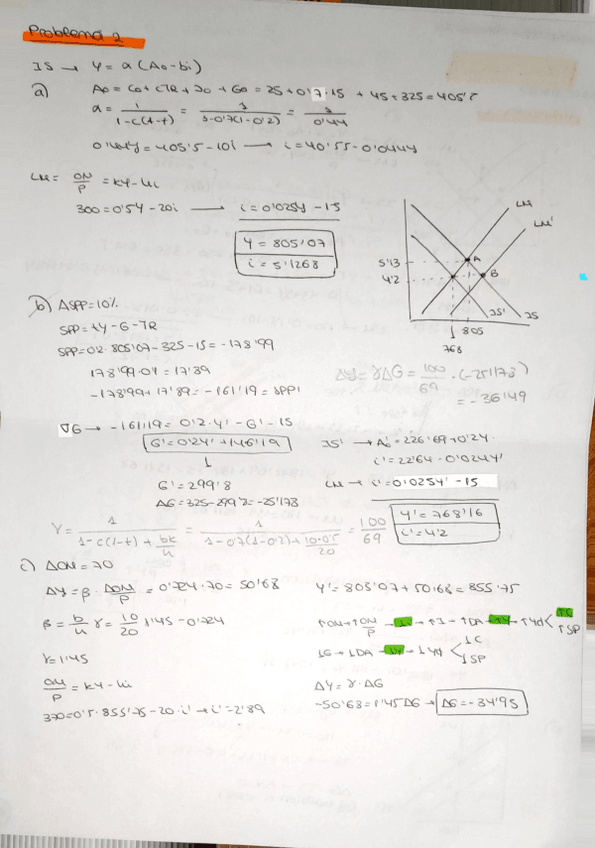 Problema 2
IS → Y = α (A0 - bi)
a) A0 = C0 + cTR + I0 + G0 = 25 + 0'7·15 + 45 + 325 = 405'5
α = 1/(1-c(1-t)) = 1/(1-0'7(1-0'2)) = 1/0'44
0'44Y = 405'5 - 10i → i = 40'55 - 0'044Y
LM = OM/P = kY - hi
300 = 0'5Y - 20i → i = 0'025Y - 15
Y = 805'07
i = 5'1268
LM
LM'
5'13
4'2
A
B
IS'
IS
805
768
b) ΔSPP = 10%
SPP = tY - G - TR
SPP = 0'2·805'07 - 325 - 15 = -178'99
178'99·0'1 = 17'89
-178'99 + 17'89 = -161'19 = SPP'
ΔY = γΔG = 100/69 · (-25'173)
= -36'49
∇G → -161'19 = 0'2·Y' - G' - 15
G' = 0'2Y' + 146'19
↓
G' = 299'8
ΔG = 325 - 299'8 = -25'173
IS' → A0' = 226'69 + 0'2Y
i' = 22'64 - 0'024Y'
LM → i' = 0'025Y' - 15
Y' = 768'16
i' = 4'2
γ = 1/(1-c(1-t) + bk/h) = 1/(1-0'7(1-0'2) + 10·0'5/20) = 100/69
c) ΔOM = 70
ΔY = β · ΔOM/P = 0'724·70 = 50'68
Y' = 805'07 + 50'68 = 855'75
β = b/h γ = 10/20 1'45 = 0'724
↑OM → ↑OM/P → ↓i → ↑I → ↑DA → ↑Y → ↑Yd < ↑C
↑SP
γ = 1'45
↓G → ↓DA → ↓Y → ↓Yd < ↓C
↓SP
OM/P = kY - hi
370 = 0'5·855'75 - 20·i' → i' = 2'89
ΔY = γ·ΔG
-50'68 = 1'45ΔG → ΔG = -34'95